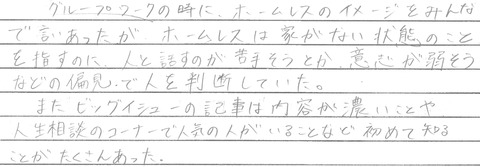 グループワークの時に、ホームレスのイメージをみんな
で言いあったが、ホームレスは家がない状態のこと
を指すのに、人と話すのが苦手そうとか、意志が弱そう
などの偏見で人を判断していた。
またビッグイシューの記事は内容が濃いことや
人生相談のコーナーで人気の人がいることなど初めて知る
ことがたくさんあった。